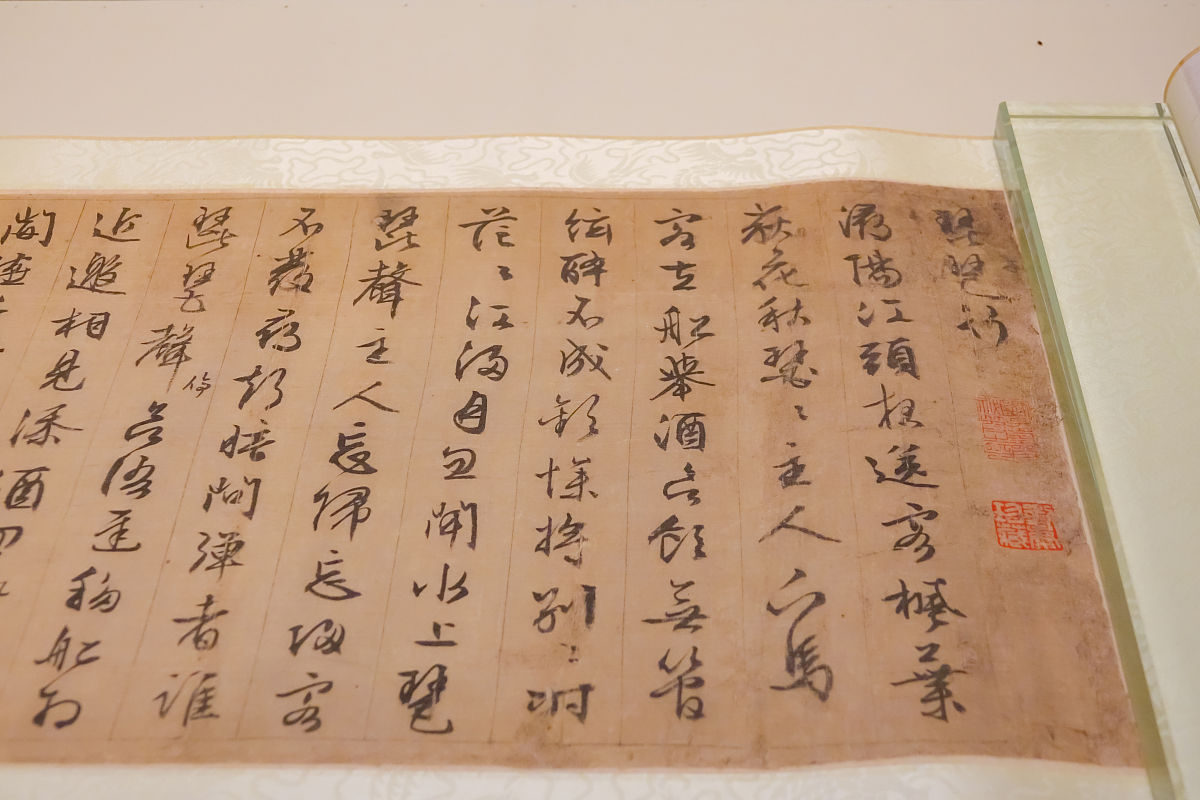 琵琶行
潯陽江頭夜送客楓葉
荻花秋瑟〻主人下馬
客在船舉酒欲飲無管
絃醉不成歡慘將別〻時
茫〻江浸月忽聞水上琵
琶聲主人忘歸忘歸客
不發尋聲暗問彈者誰
琵琶聲停欲語遲移船相
近邀相見添酒回